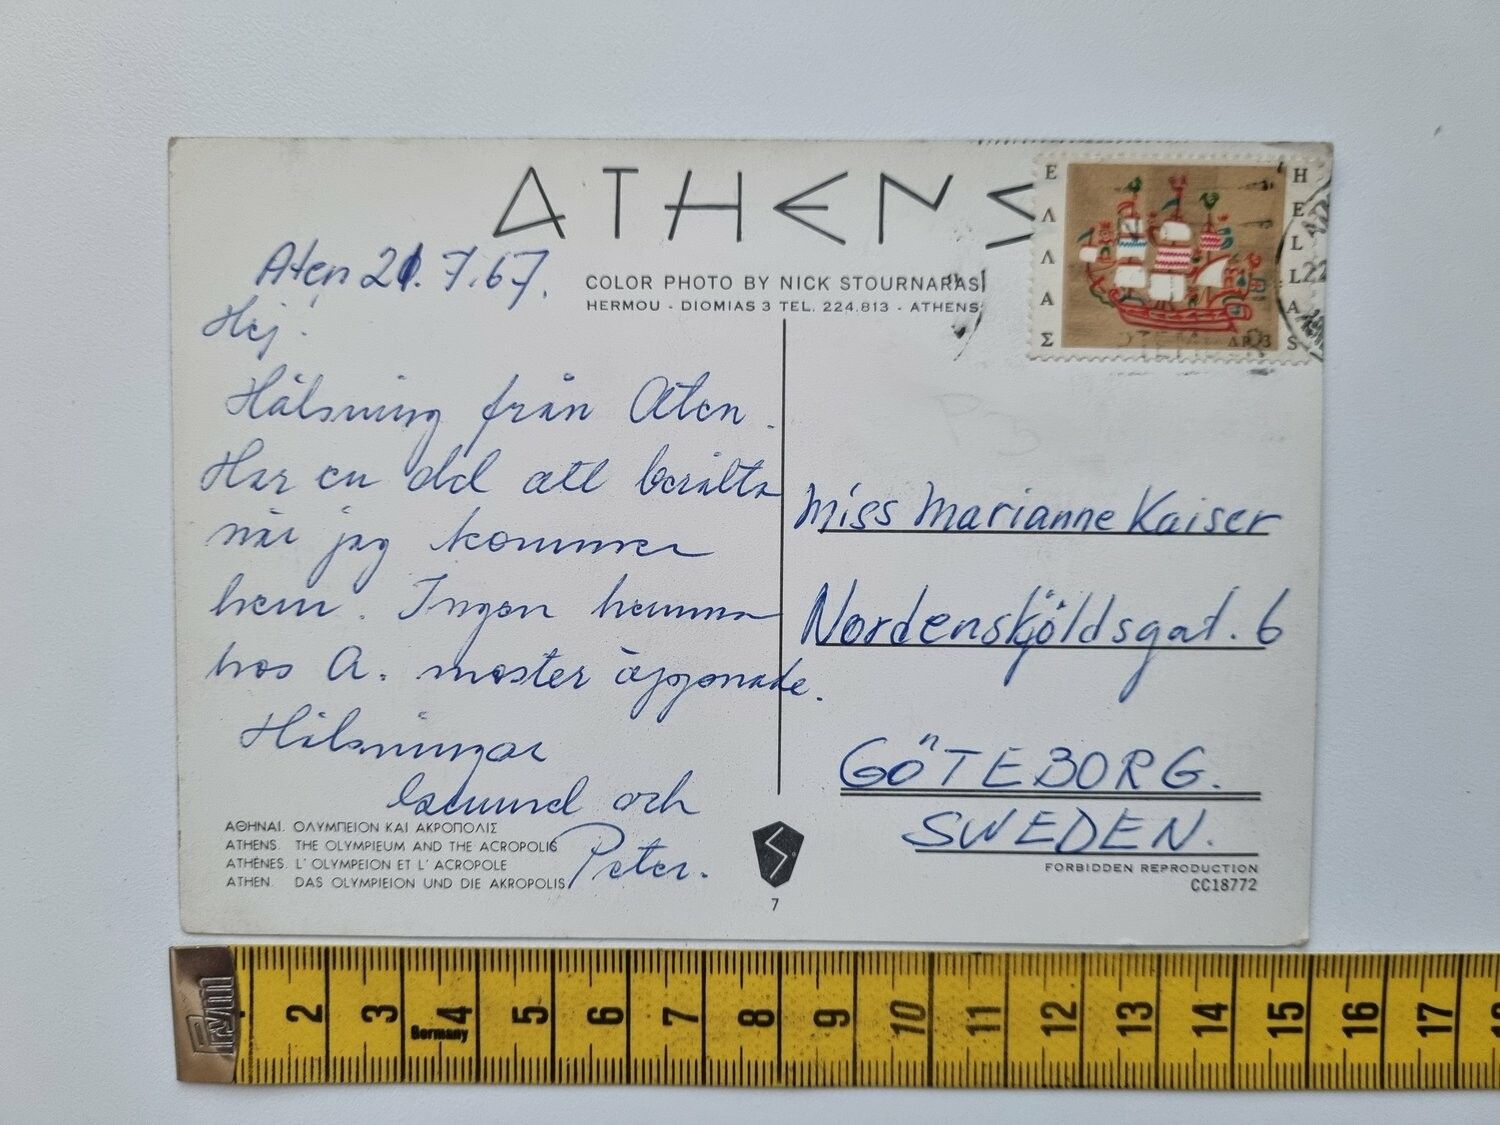 ATHENS
ΕΛΛΑΣ
HELLAS
ΔΡ. 3
COLOR PHOTO BY NICK STOURNARAS
HERMOU - DIOMIAS 3 TEL. 224.813 - ATHENS
Aten 21.7.67.
Hej!
Hälsning från Aten.
Har en del att berätta
när jag kommer
hem. Ingen hemma
hos A. moster öppnade.
Hälsningar
och
Peter.
Miss Marianne Kaiser
Nordensköldsgat. 6
GÖTEBORG.
SWEDEN.
ΑΘΗΝΑΙ. ΟΛΥΜΠΕΙΟΝ ΚΑΙ ΑΚΡΟΠΟΛΙΣ
ATHENS. THE OLYMPIEUM AND THE ACROPOLIS
ATHÈNES. L' OLYMPEION ET L' ACROPOLE
ATHEN. DAS OLYMPIEION UND DIE AKROPOLIS
7
FORBIDDEN REPRODUCTION
CC18772
2 3 4 5 6 7 8 9 10 11 12 13 14 15 16 17
Germany
Prym